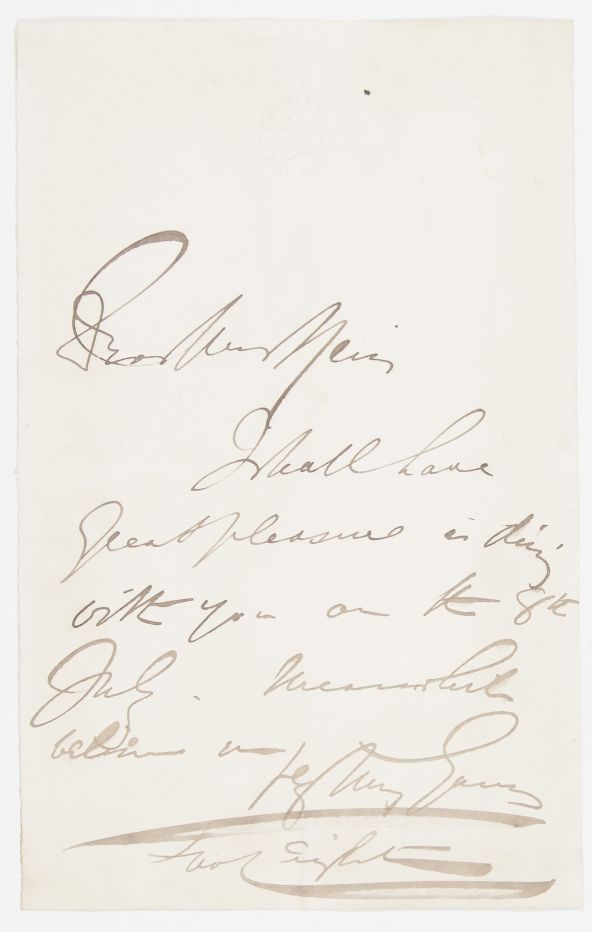 Dear Mrs
I shall have
great pleasure in dining
with you on the 8th
July. Meanwhile
believe me
Yours